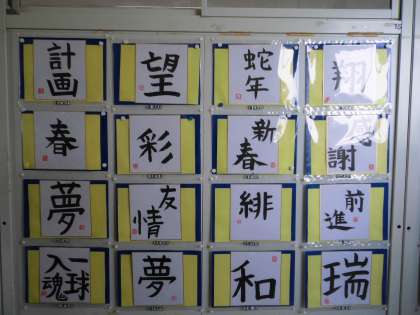 計画
望
蛇年
翔
春
彩
新春
感謝
夢
友情
緋
前進
一球入魂
夢
和
瑞